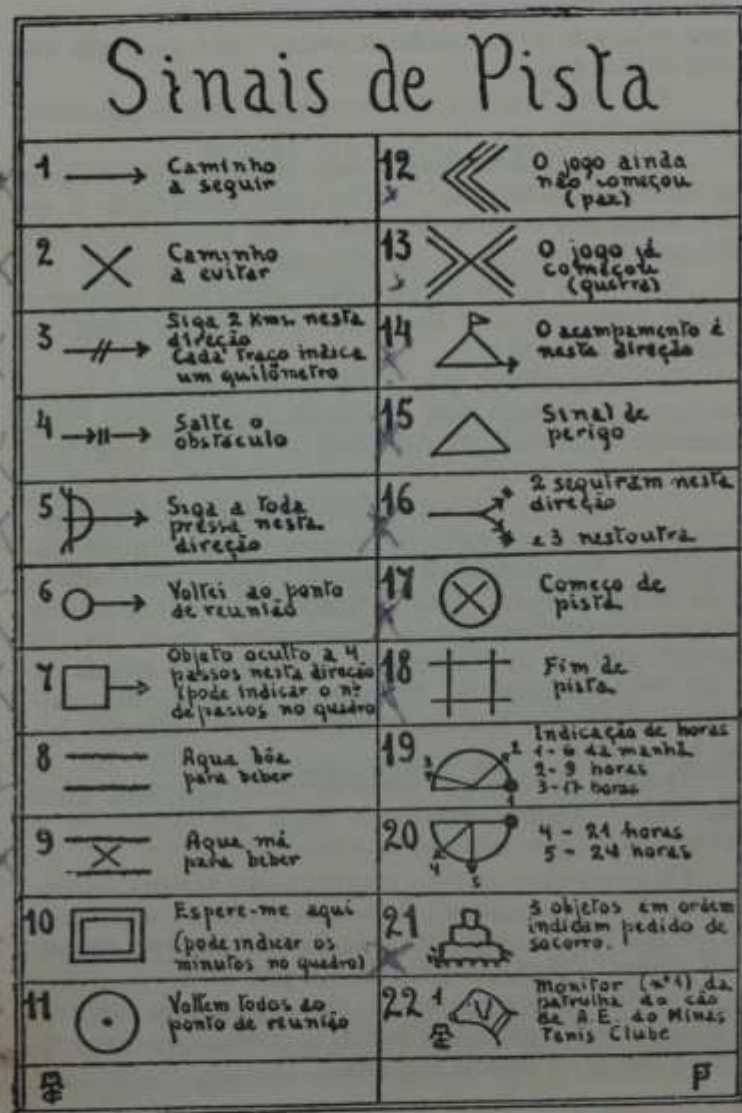 Sinais de Pista
1 Caminho
a seguir
2 Caminho
a evitar
3 Siga 2 Kms. nesta
direção
Cada traço indica
um quilômetro
4 Salte o
obstáculo
5 Siga a toda
pressa nesta
direção
6 Voltei ao ponto
de reunião
7 Objeto oculto a 4
passos nesta direção
(pode indicar o nº
de passos no quadro
8 Agua bôa
para beber
9 Agua má
para beber
10 Espere-me aqui
(pode indicar os
minutos no quadro)
11 Voltem todos ao
ponto de reunião
12 O jogo ainda
não começou
(paz)
13 O jogo já
começou
(guerra)
14 O acampamento é
nesta direção
15 Sinal de
perigo
16 2 seguiram nesta
direção
e 3 nestoutra
17 Começo de
pista
18 Fim de
pista
19 Indicação de horas
1 - 6 da manhã
2 - 9 horas
3 - 17 horas
3 2 1
20 4 - 21 horas
5 - 24 horas
4 5
21 3 objetos em ordem
indicam pedido de
socorro.
22 1 Monitor (nº 1) da
patrulha do cão
da A.E. do Minas
Tenis Clube